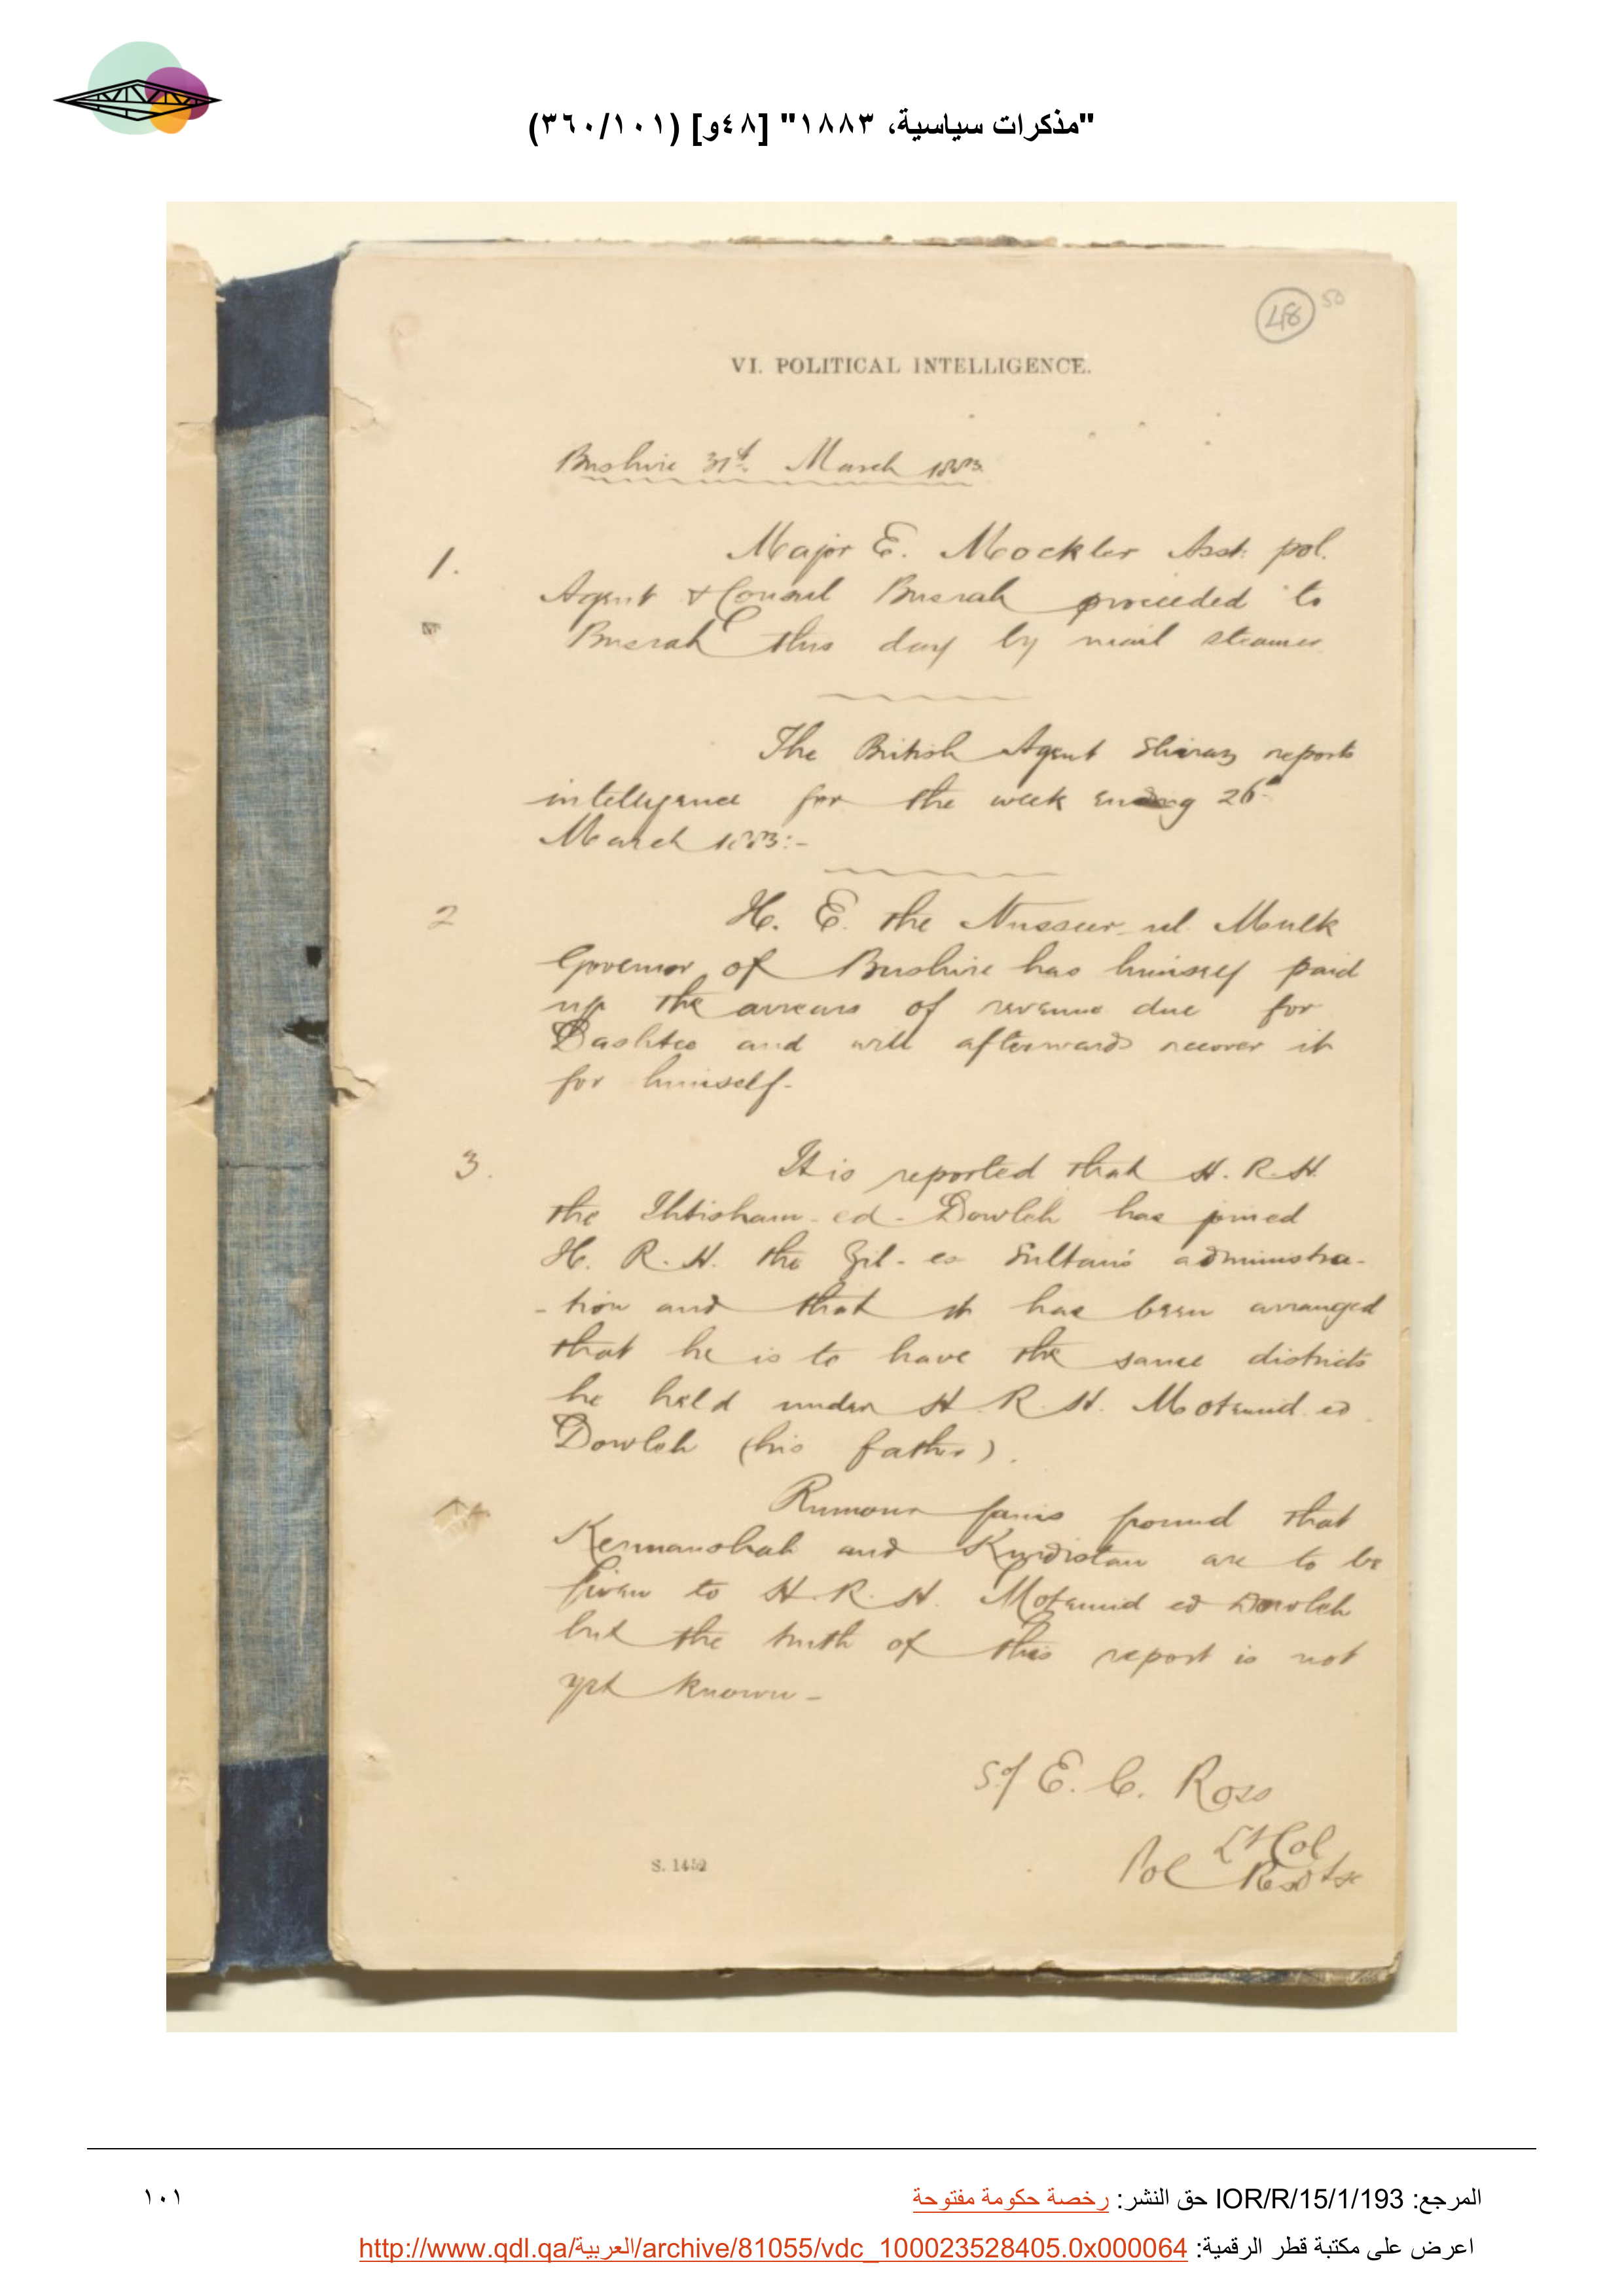 "مذكرات سياسية، ١٨٨٣" [٤٨و] (٣٦٠/١٠١)
48 50
VI. POLITICAL INTELLIGENCE.
Bushire 31st March 1883.
1. Major E. Mockler Asst. pol.
Agent & Consul Busrah proceeded to
Busrah this day by mail steamer
The British Agent Shiraz reports
intelligence for the week ending 26th
March 1883:-
2 H. E. the Nusseer-ul Mulk
Governor of Bushire has himself paid
up the arrears of revenue due for
Dashtee and will afterwards recover it
for himself-
3. It is reported that H.R.H.
the Ihtisham-ed-Dowleh has joined
H. R. H. the Zil-es Sultan's administra-
-tion and that it has been arranged
that he is to have the same districts
he held under H.R.H. Motemud ed
Dowleh (his father).
Rumour gains ground that
Kermanshah and Kurdistan are to be
given to H.R.H. Motemid ed Dowleh
but the truth of this report is not
yet known-
Sd/ E. C. Ross
Lt Col
Pol Resdt &c
S. 1452
المرجع: IOR/R/15/1/193 حق النشر: رخصة حكومة مفتوحة
١٠١
اعرض على مكتبة قطر الرقمية: http://www.qdl.qa/العربية/archive/81055/vdc_100023528405.0x000064